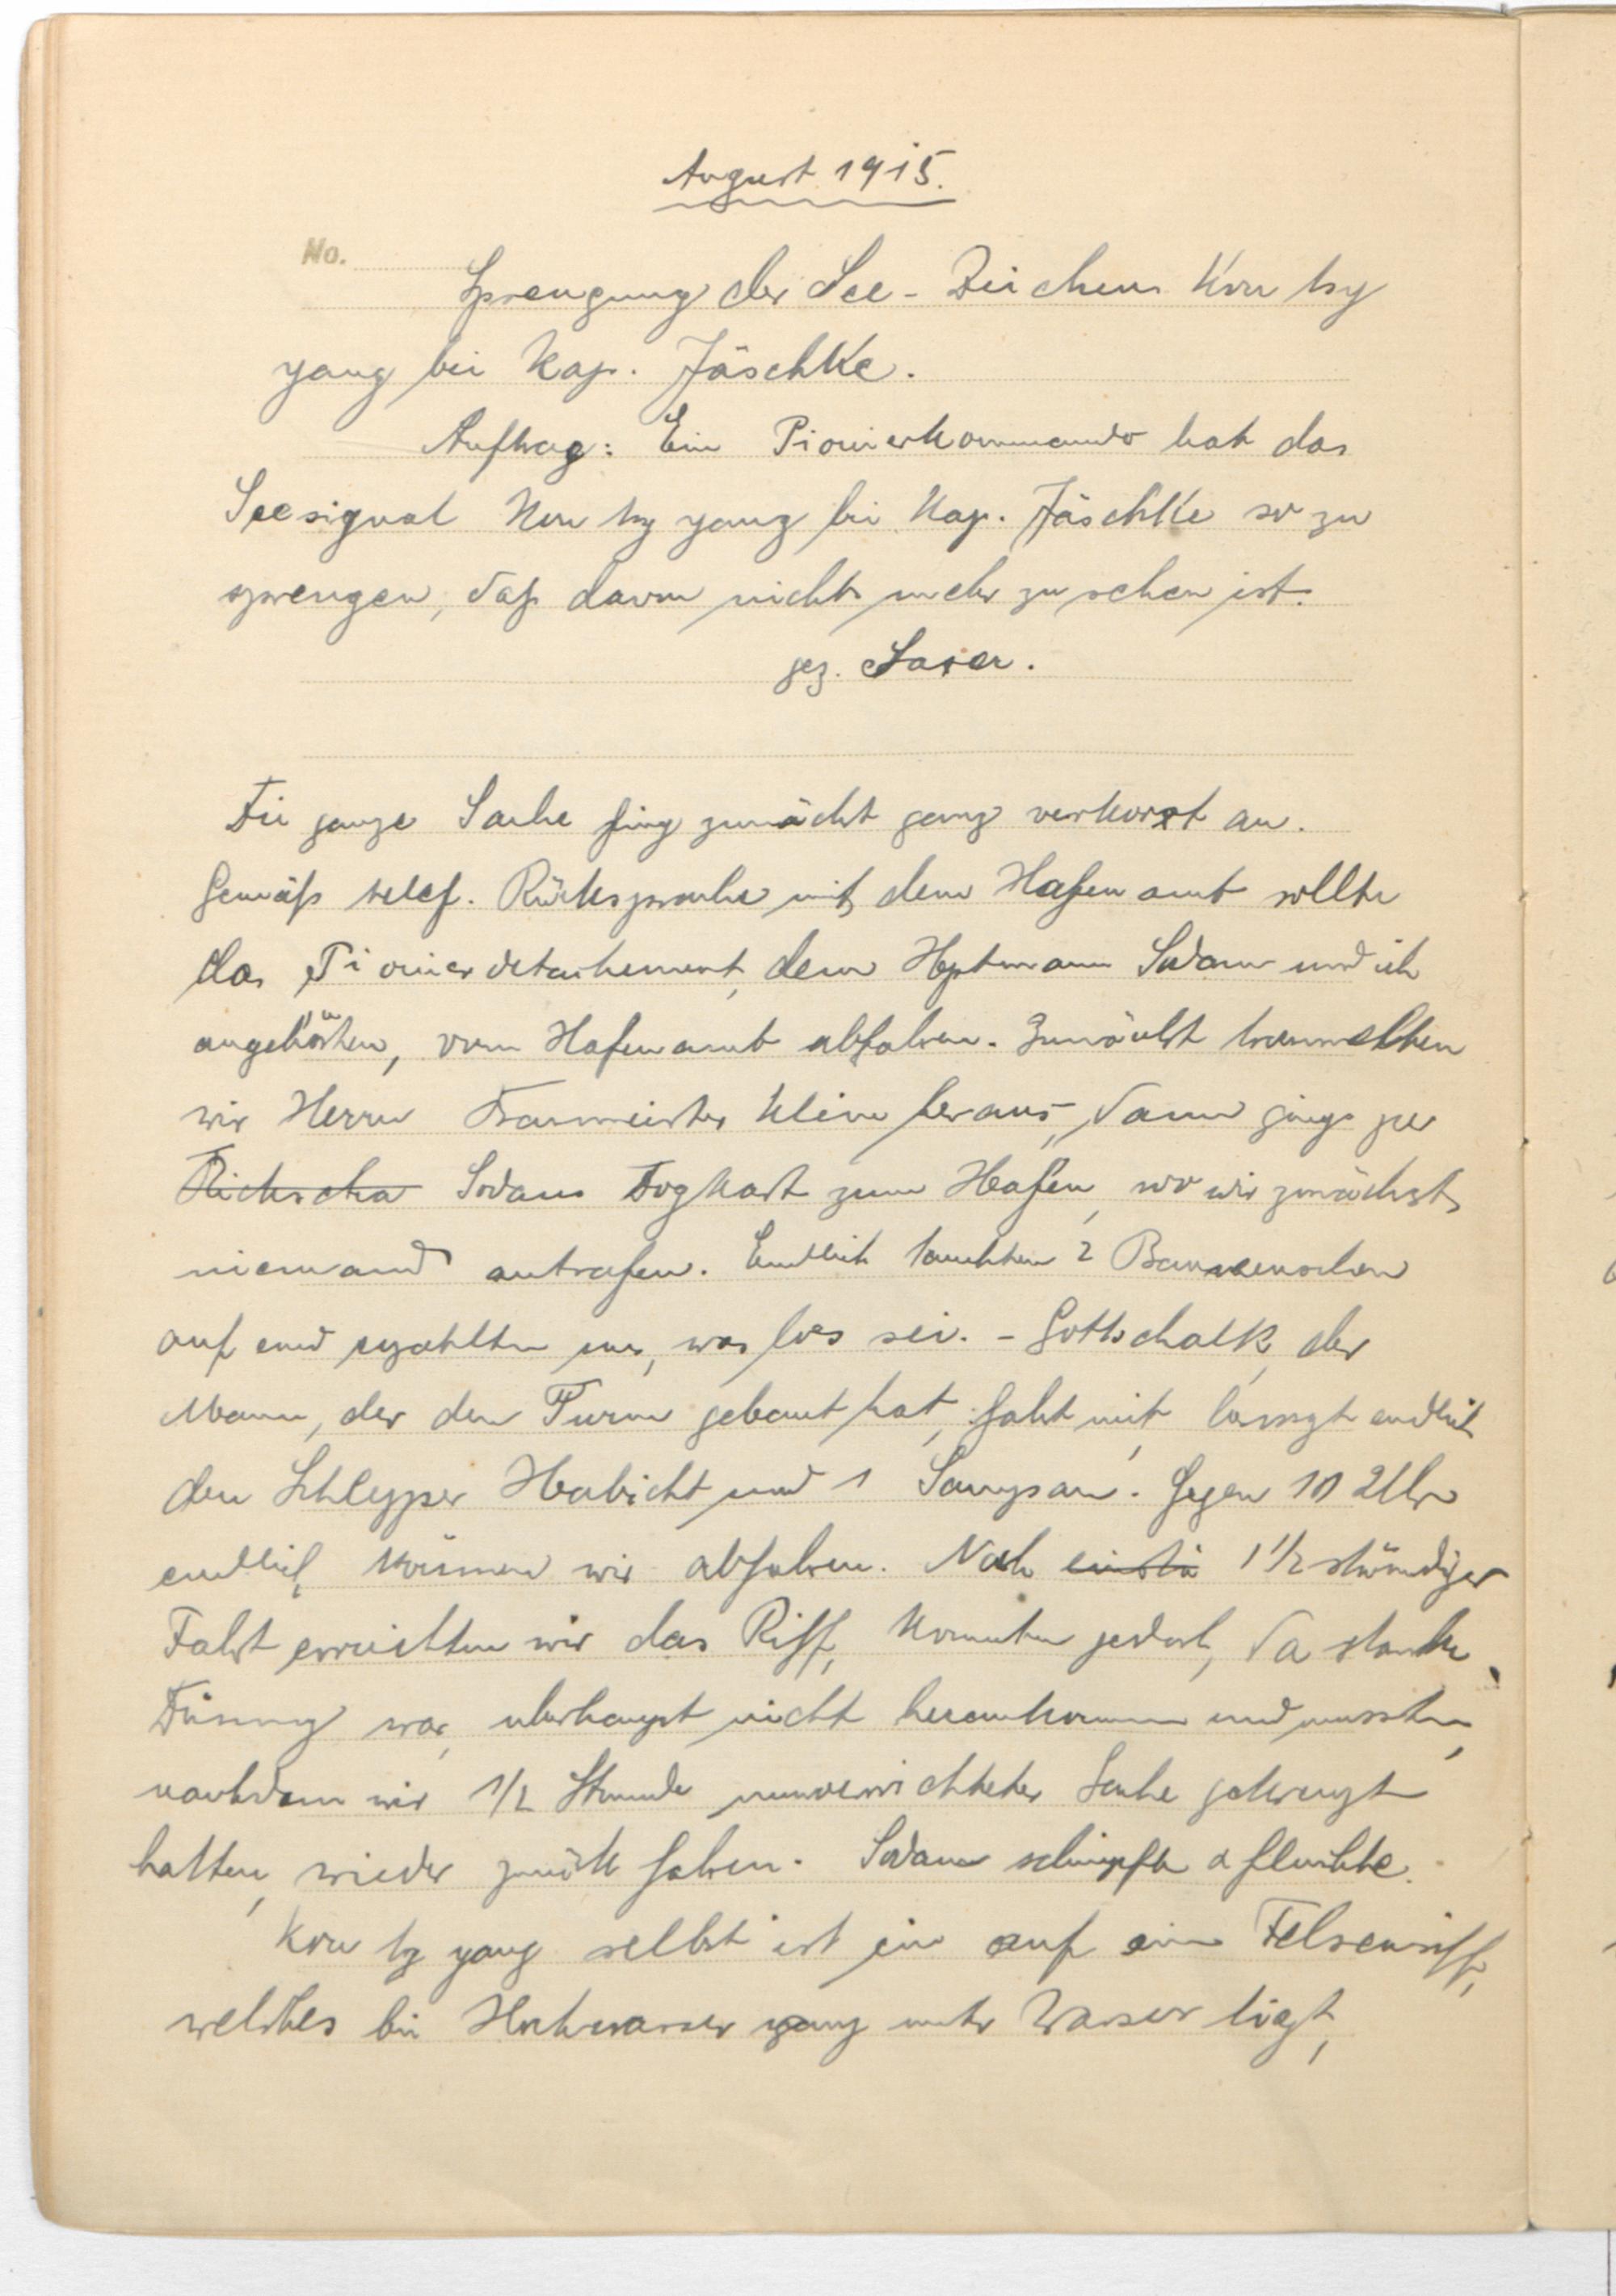 August 1915.
No.
Sprengung des See-Zeichens Kou tsy
yang bei Kap. Jäschke.
Auftrag: Ein Pionierkommando hat das
Seesignal Kou tsy yang bei Kap. Jäschke so zu
sprengen, daß davon nichts mehr zu sehen ist.
gez. Saxer.
Die ganze Sache fing zunächst ganz verkorxt an.
Gemäß telef. Rücksprache mit dem Hafenamt sollte
das Pionierdetachement, dem Hptmann Sodan und ich
angehörten, vom Hafenamt abfahren. Zunächst trommelten
wir Herrn Baumeister Klein heraus, dann gings per
Rickscha Sodans Dogkart zum Hafen, wo wir zunächst
niemand antrafen. Endlich tauchten 2 Baumenschen
auf und erzählten uns, was los sei. - Gottschalk, der
Mann, der den Turm gebaut hat, fährt mit, besorgt endlich
den Schlepper Habicht und 1 Sampan. Gegen 10 Uhr
endlich können wir abfahren. Nach 1 1/2 stündiger
Fahrt erreichten wir das Riff, konnten jedoch, da starke
Dünung war, überhaupt nicht herankommen und mussten,
nachdem wir 1/2 Stunde unverrichteter Sache gekreuzt
hatten, wieder zurück fahren. Sodan schimpfte & fluchte.
Kou tsy yang selbst ist ein auf ein Felsenriff,
welches bei Hochwasser ganz unter Wasser liegt,